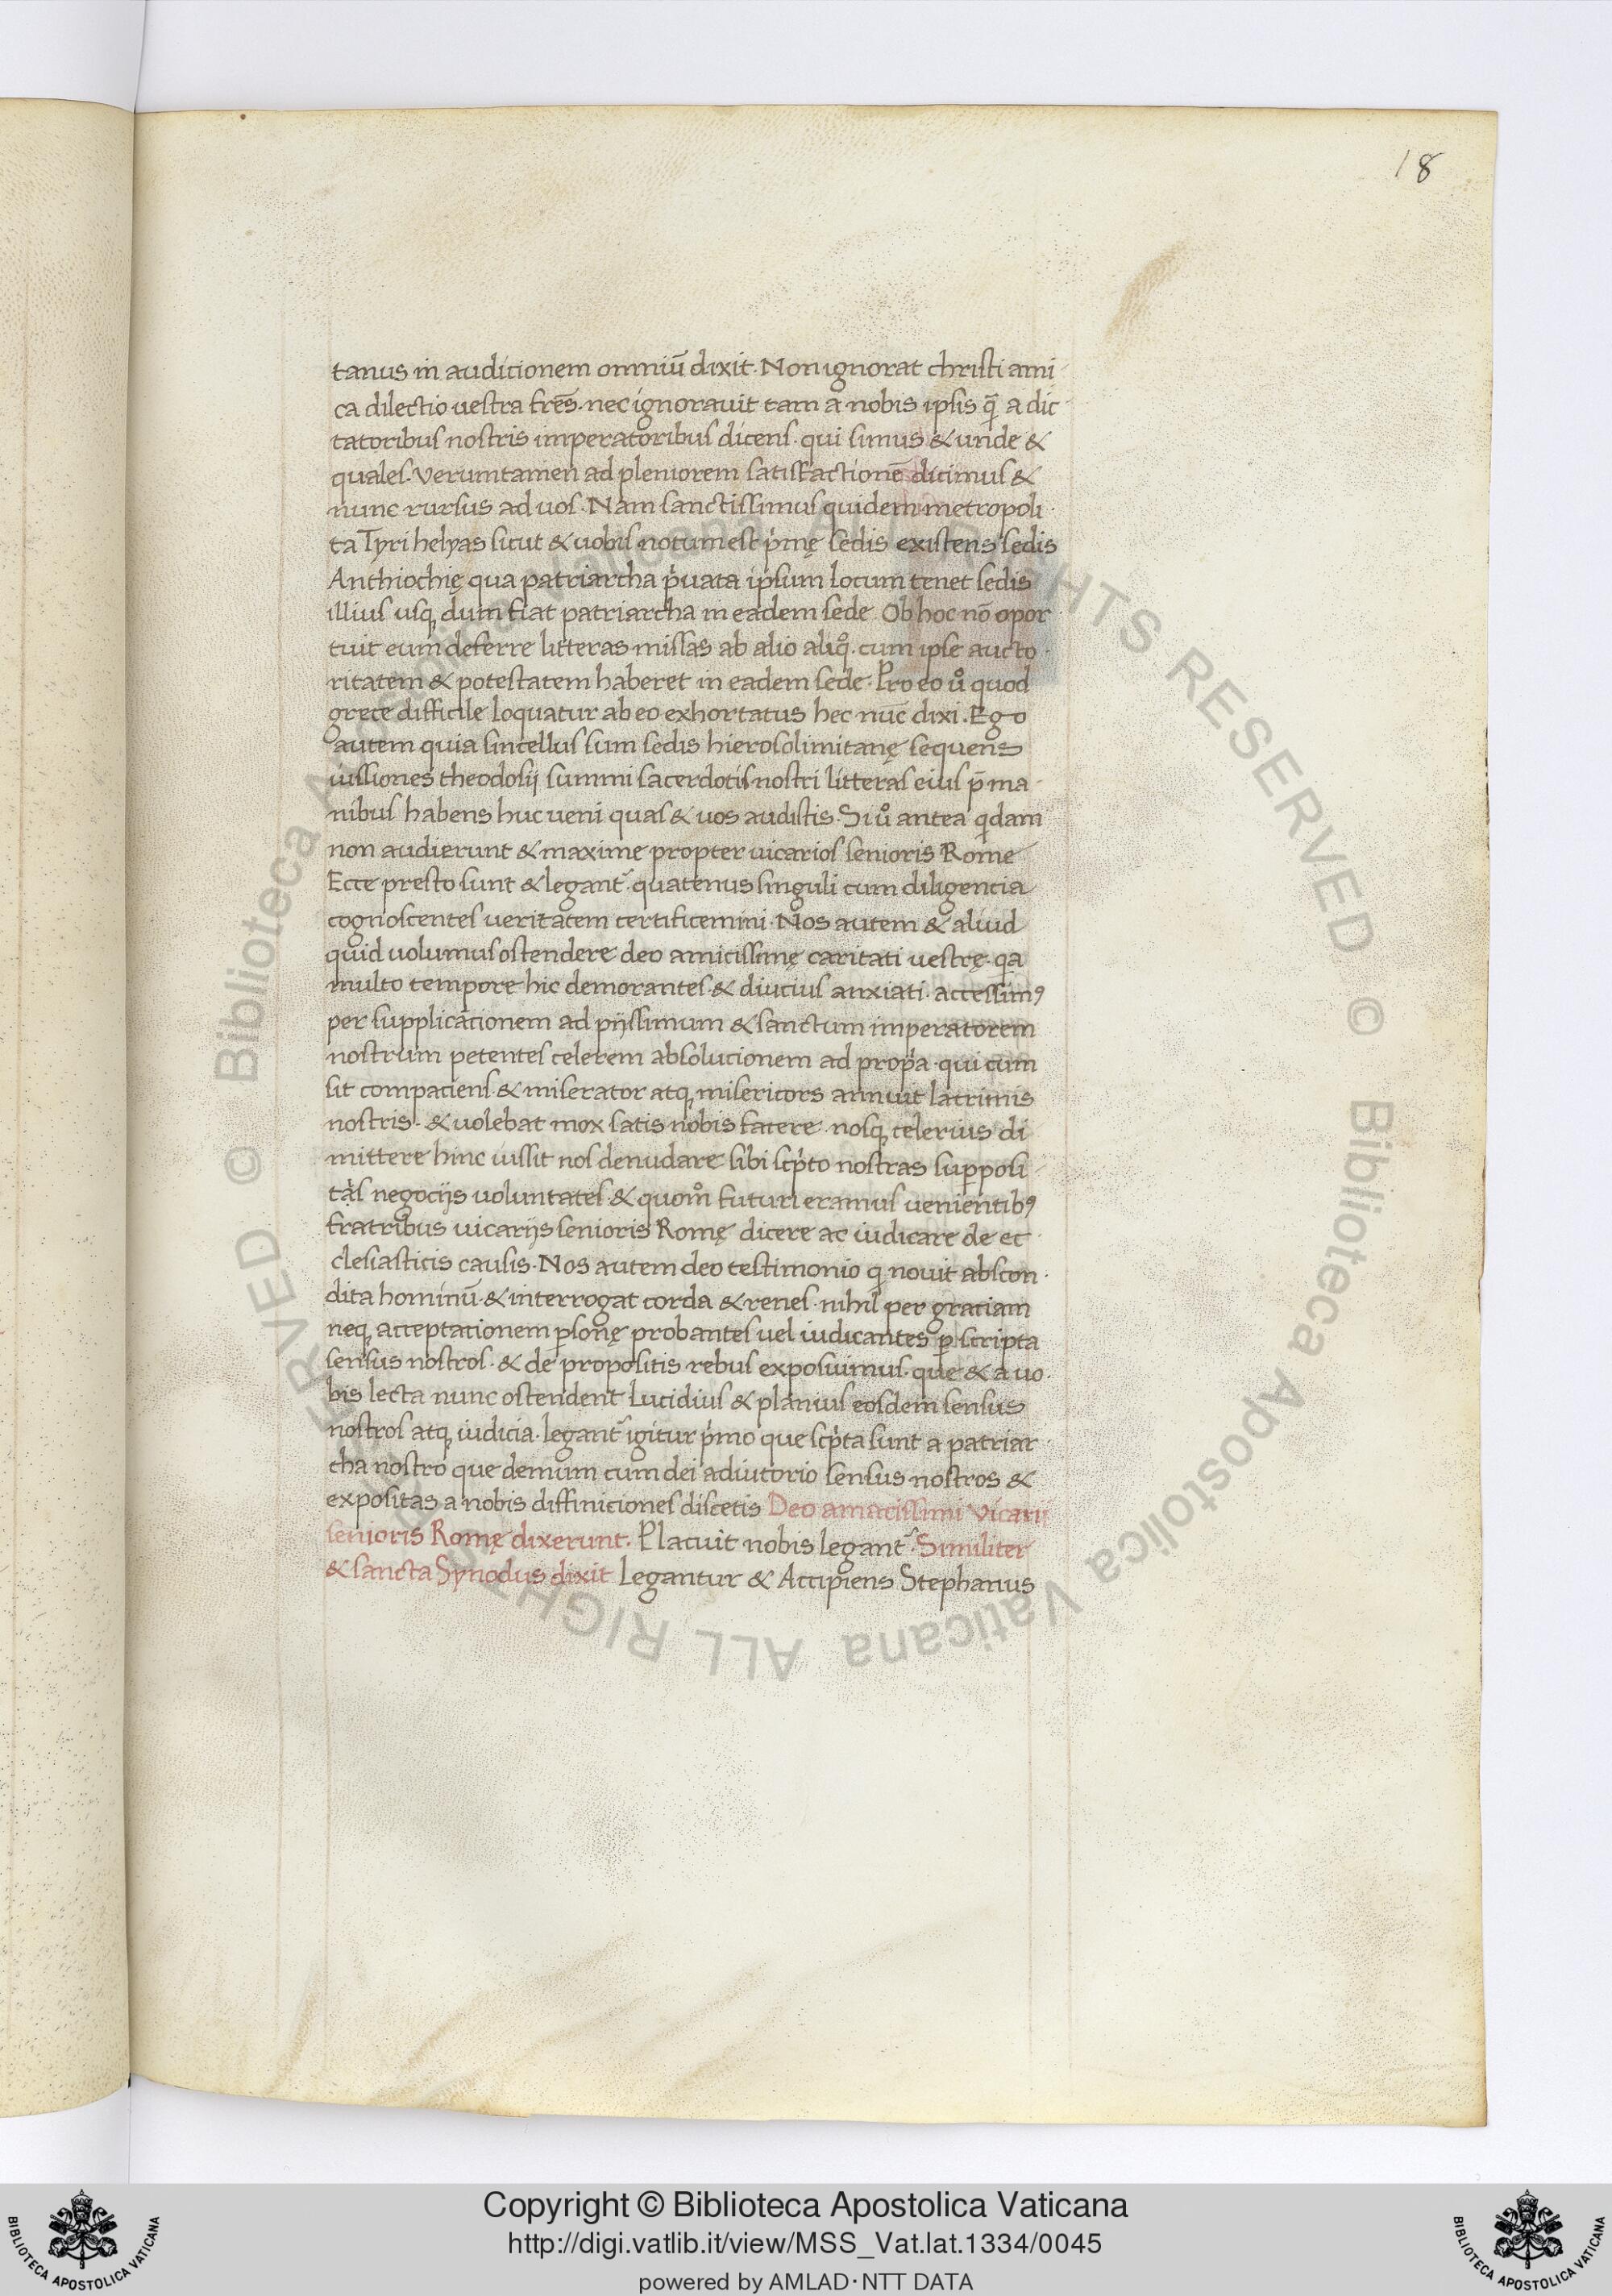 18
tanus in audicionem omniū dixit. Non ignorat christi ami
ca dilectio uestra frēs. nec ignorauit tam a nobis ipsis q̄ a dic
tatoribus nostris imperatoribus dicens. qui simus & unde &
quales. Verumtamen ad pleniorem satisfactionē dicimus &
nunc rursus ad uos. Nam sanctissimus quidem metropoli
ta Tyri helyas sicut & uobis notum est p͛mę sedis existens sedis
Anthiochię qua patriarcha p͛uata ipsum locum tenet sedis
illius usq; dum fiat patriarcha in eadem sede. Ob hoc nō opor
tuit eum deferre litteras missas ab alio aliqͦ. cum ipse aucto
ritatem & potestatem haberet in eadem sede. Pro eo uͦ quod
grece difficile loquatur ab eo exhortatus hec nūc dixi. Ego
autem quia sincellus sum sedis hierosolimitanę sequens
iussiones theodosij summi sacerdotis nostri litteras eius p̄ ma
nibus habens huc ueni quas & uos audistis. Si uͦ antea qͥdam
non audierunt & maxime propter uicarios senioris Rome
Ecce presto sunt & legant᷑. quatenus singuli cum diligencia
cognoscentes ueritatem certificemini. Nos autem & aliud
quid uolumus ostendere deo amicissimę caritati uestrę. qa
multo tempore hic demorantes. & diucius anxiati. accessimꝰ
per supplicacionem ad pijssimum & sanctum imperatorem
nostrum petentes celerem absolucionem ad prop͛a. qui cum
sit compaciens. & miserator atq; misericors annuit lacrimis
nostris. & uolebat mox satis nobis facere. nosq; celerius di
mittere hinc iussit nos denudare sibi sc͛pto nostras sup̱posi
tas negocijs uoluntates. & quomͦ futuri eramus uenientibꝰ
fratribus uicarijs senioris Romę dicere ac iudicare de ec
clesiasticis causis. Nos autem deo testimonio qͥ nouit abscon
dita hominū. & interrogat corda & renes. nihil per gratiam
neq; acceptationem ꝑsonę probantes uel iudicantes ꝑ scripta
sensus nostros. & de propositis rebus exposuimus. que & a uo
bis lecta nunc ostendent Lucidius & planius eosdem sensus
nostros atq; iudicia. legant᷑ igitur p͛mo que sc͛pta sunt a patriar
cha nostro que demum cum dei adiutorio sensus nostros &
expositas a nobis diffiniciones discetis Deo amatissimi Vicarii
senioris Romę dixerunt. Placuit nobis legant᷑. Similiter
& sancta Synodus dixit Legantur & Accipiens Stephanus
© Biblioteca Apostolica Vaticana ALL RIGHTS RESERVED
© Biblioteca Apostolica Vaticana ALL RIGHTS RESERVED
Copyright © Biblioteca Apostolica Vaticana
http://digi.vatlib.it/view/MSS_Vat.lat.1334/0045
powered by AMLAD·NTT DATA
BIBLIOTECA APOSTOLICA VATICANA
BIBLIOTECA APOSTOLICA VATICANA